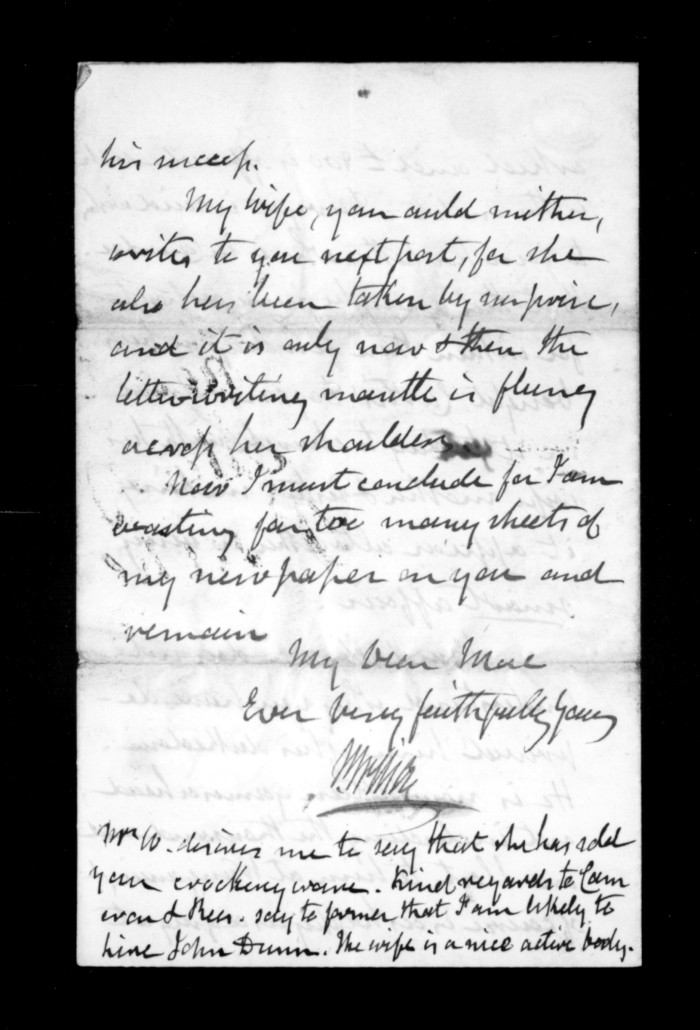 his success.
My wife, your auld mither,
writes to you next post, for she
also has been taken by surprise,
and it is only now & then the
letterwriting mantle is flung
across her shoulders
Now I must conclude for I am
wasting far too many sheets of
my new paper on you and
remain
My Dear Mac
Ever Very faithfully Yours
Mrs W. desires me to say that she has sold
your crockeryware. Kind regards to Cam
eron & Rees. say to former that I am likely to
hire John Dunn. The wife is a nice active body.